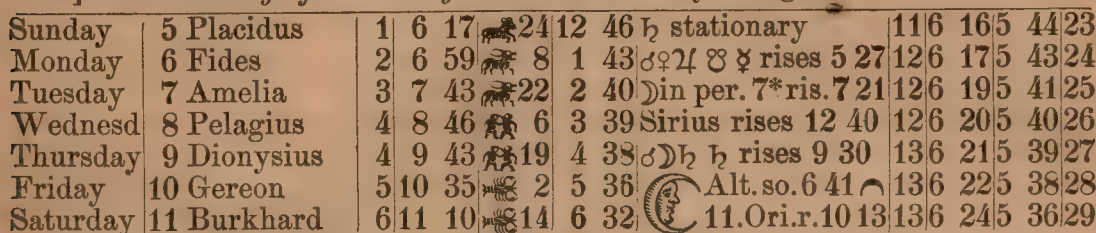 Sunday 5 Placidus 1 6 17 24 12 46 ♄ stationary 11 6 16 5 44 23
Monday 6 Fides 2 6 59 8 1 43 ☌♀♃ ☋ ☿ rises 5 27 12 6 17 5 43 24
Tuesday 7 Amelia 3 7 43 22 2 40 ☽in per. 7*ris. 7 21 12 6 19 5 41 25
Wednesd 8 Pelagius 4 8 46 6 3 39 Sirius rises 12 40 12 6 20 5 40 26
Thursday 9 Dionysius 4 9 43 19 4 38 ☌☽♄ ♄ rises 9 30 13 6 21 5 39 27
Friday 10 Gereon 5 10 35 2 5 36 Alt. so. 6 41 13 6 22 5 38 28
Saturday 11 Burkhard 6 11 10 14 6 32 11. Ori. r. 10 13 13 6 24 5 36 29